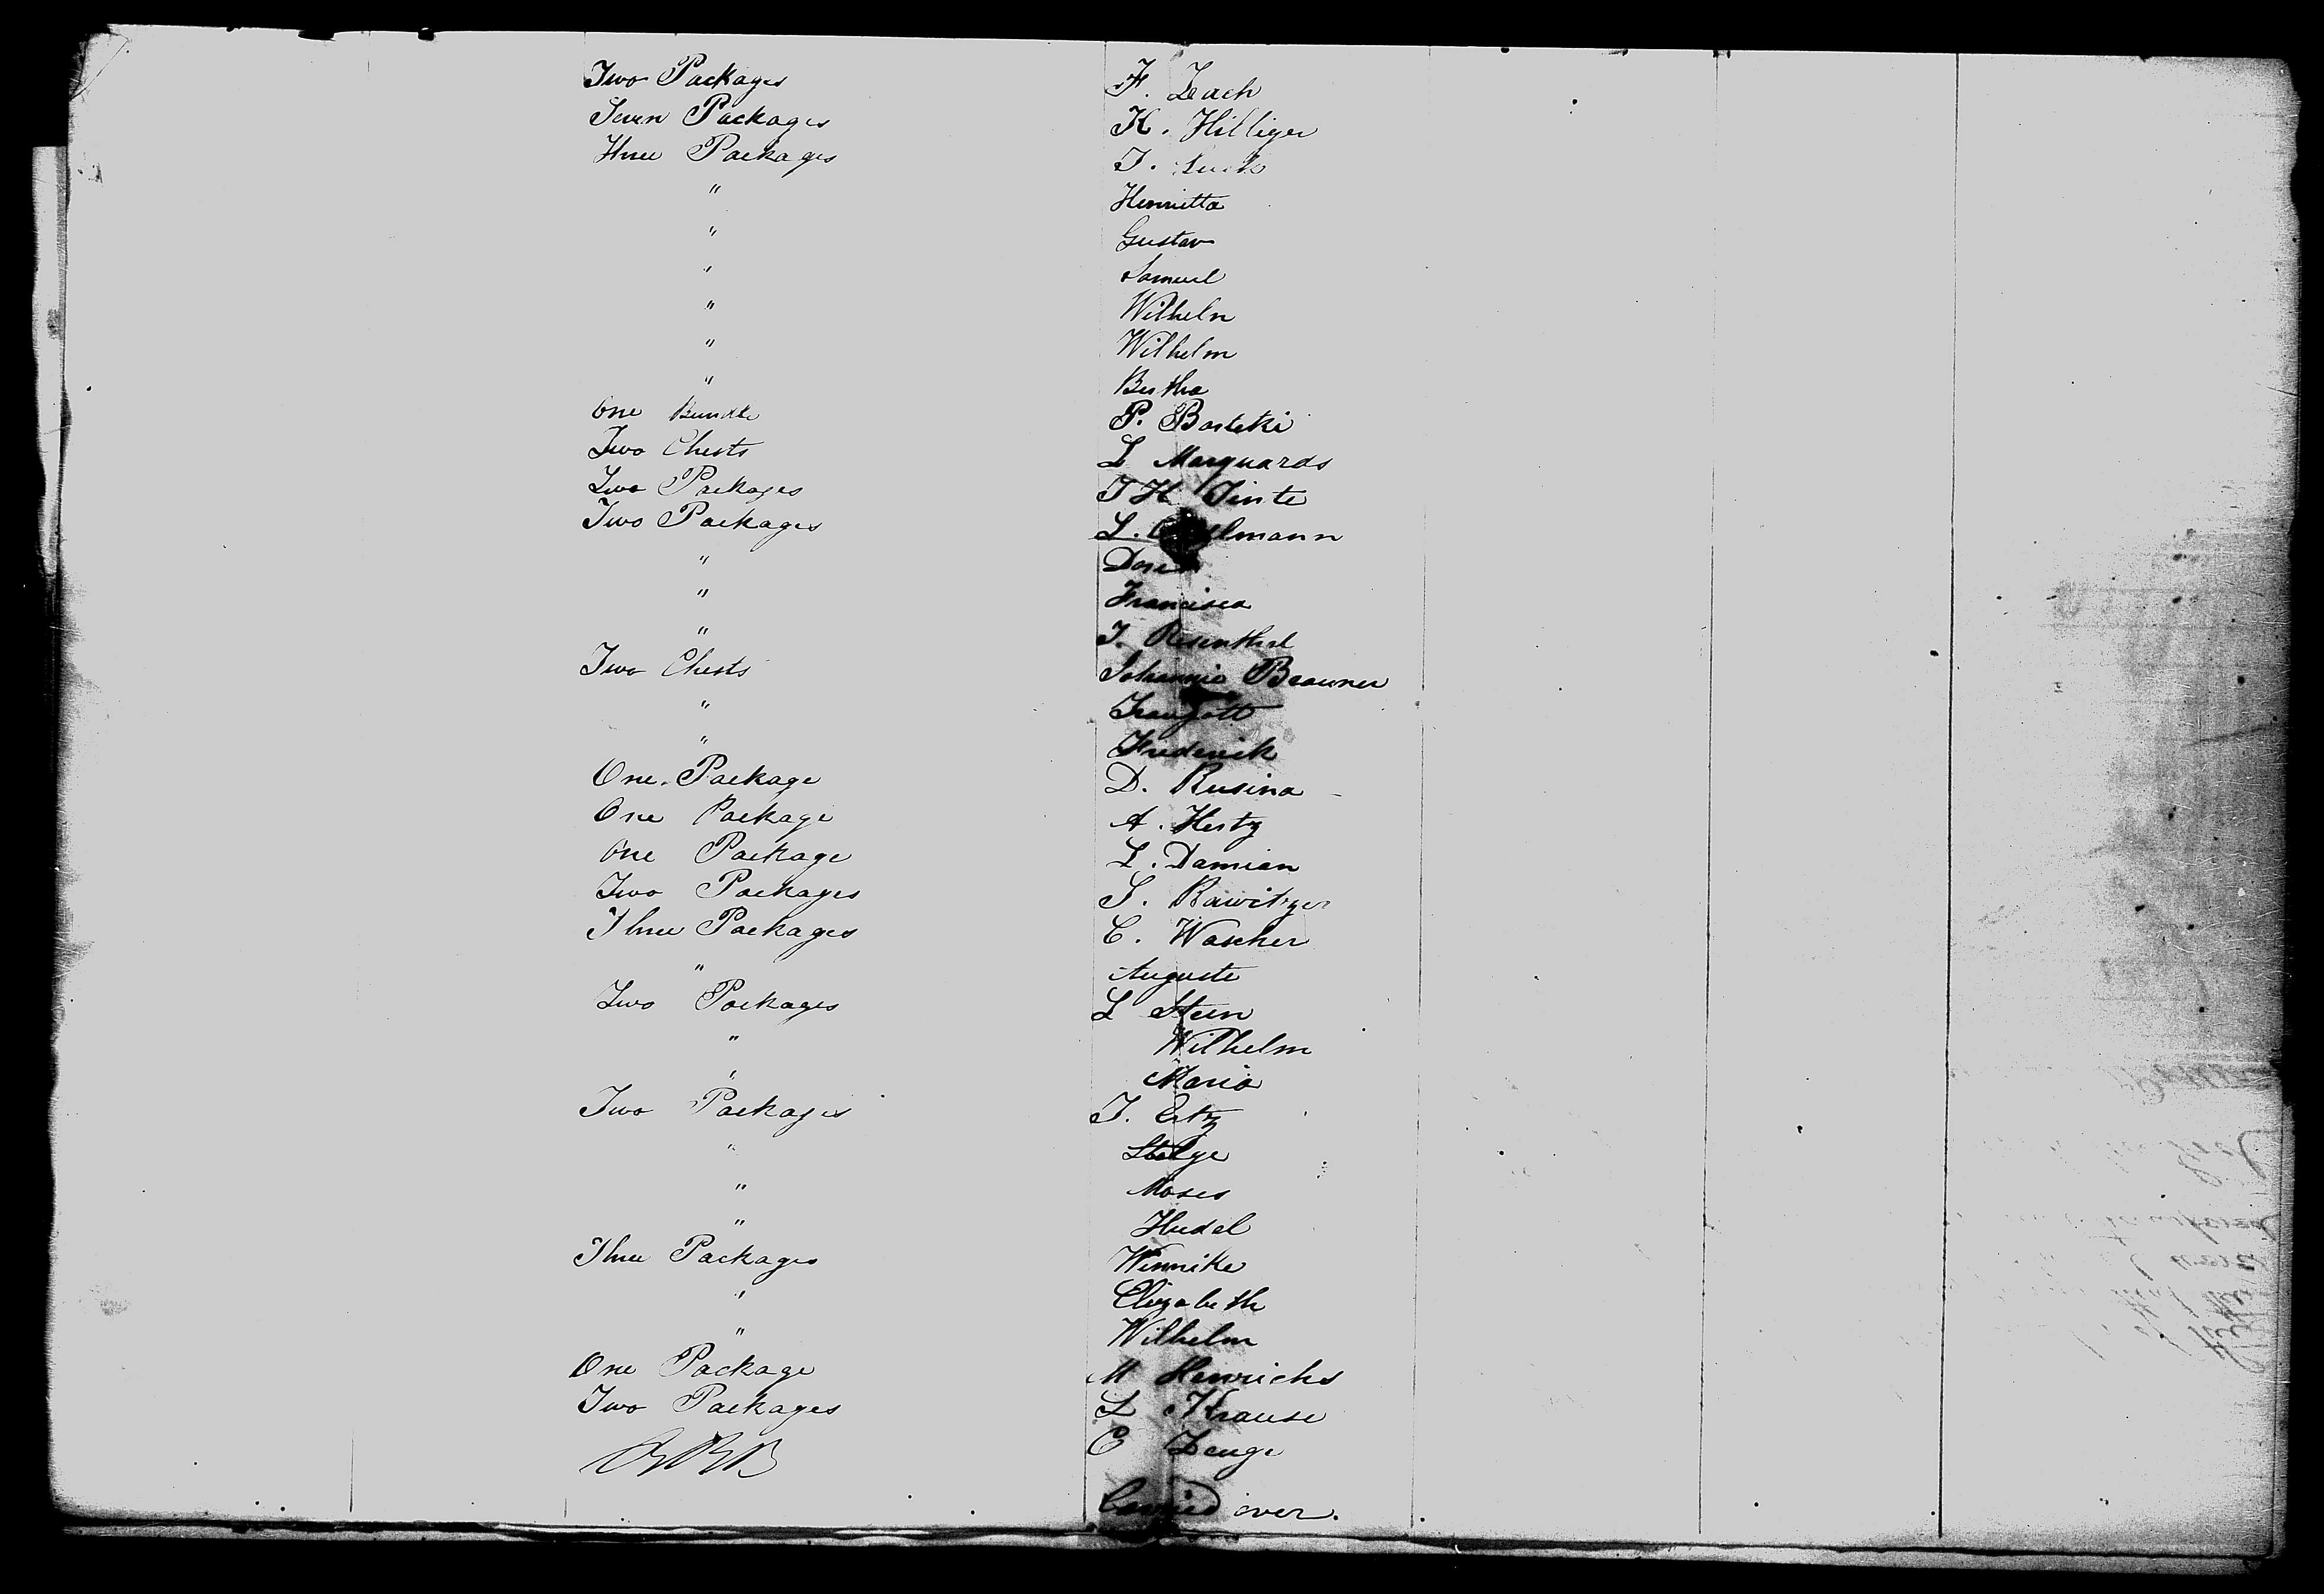 Two Packages F. Zach
Seven Packages K. Hilliger
Three Packages J.
" Henrietta
" Gustav
" Samuel
" Wilheln
" Wilhelm
" Bertha
One Bundle P. Bortetki
Two Chests L Marquards
Two Packages J H Tinte
Two Packages L.
" Dore
" Francisca
" J. Rosenthal
Two Chests Johannis Brauner
" Traugott
" Frederick
One Package D. Rusina
One Package A. Hertz
One Package L. Damian
Two Packages S. Rawitzer
Three Packages C. Wascher
" Auguste
Two Packages L Stein
" Wilhelm
" Maria
Two Packages J. Ertz
"
" Moses
" Hudel
Three Packages Winnike
" Elizabeth
" Wilhelm
One Package M Henrichs
Two Packages L Krause
E Zeuge
Carried over.